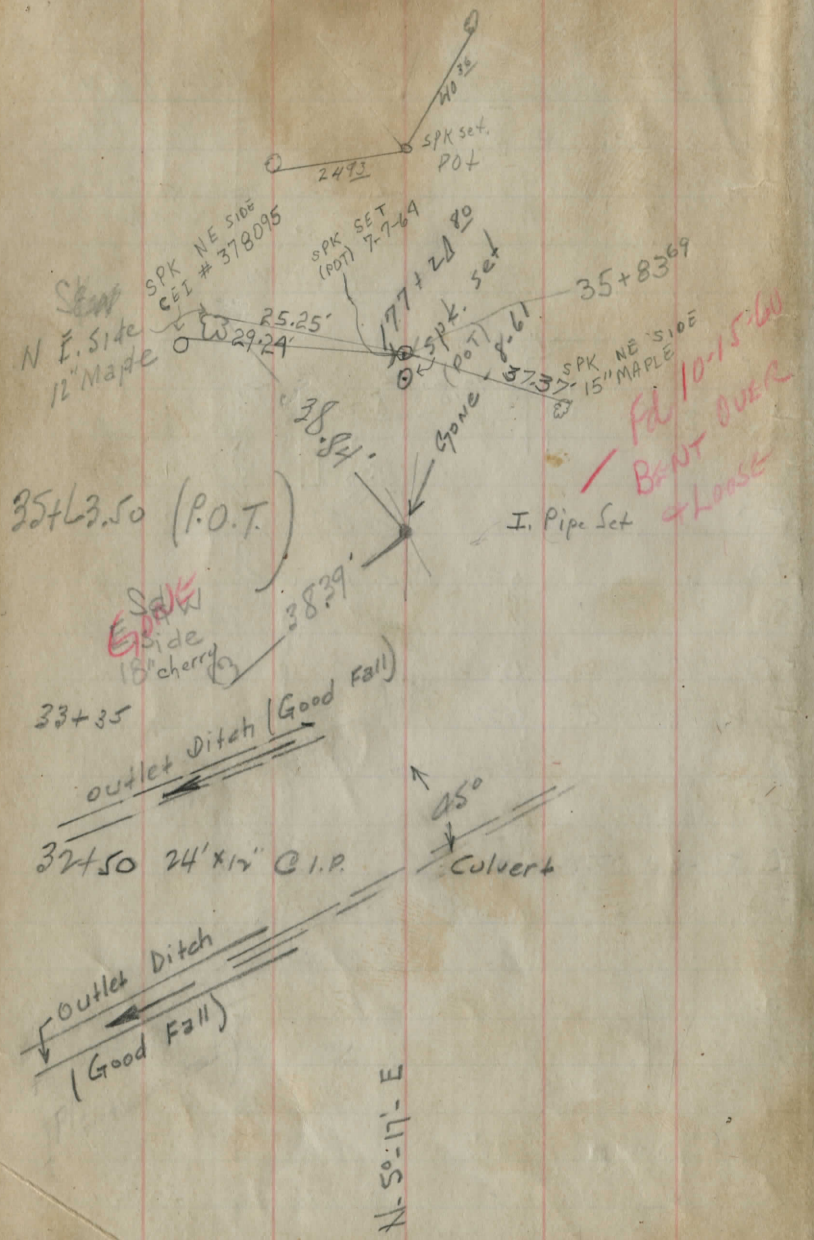 40 36
SPK set.
POT
24 93
SPK NE SIDE
CEI # 378095
SPK SET
(POT) 7-7-64
177+21 80
spk. set
(POT) 8-61
35+83 69
N E. Side
12" Maple
25.25'
29.24'
37.37'
SPK NE SIDE
15" MAPLE
Fd 10-15-60
BENT OVER
& LOOSE
GONE
38.84'
35+63.50 (P.O.T.)
I. Pipe Set
GONE
Side
18" cherry
38.39'
33+35
outlet Ditch (Good Fall)
45°
32+50 24' x 12" C.I.P.
Culvert
Outlet Ditch
(Good Fall)
N-5°-17'-E